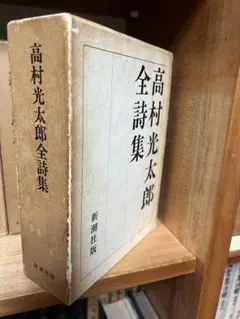 高村光太郎
全詩集
新潮社版
高村光太郎全詩集
新潮社版